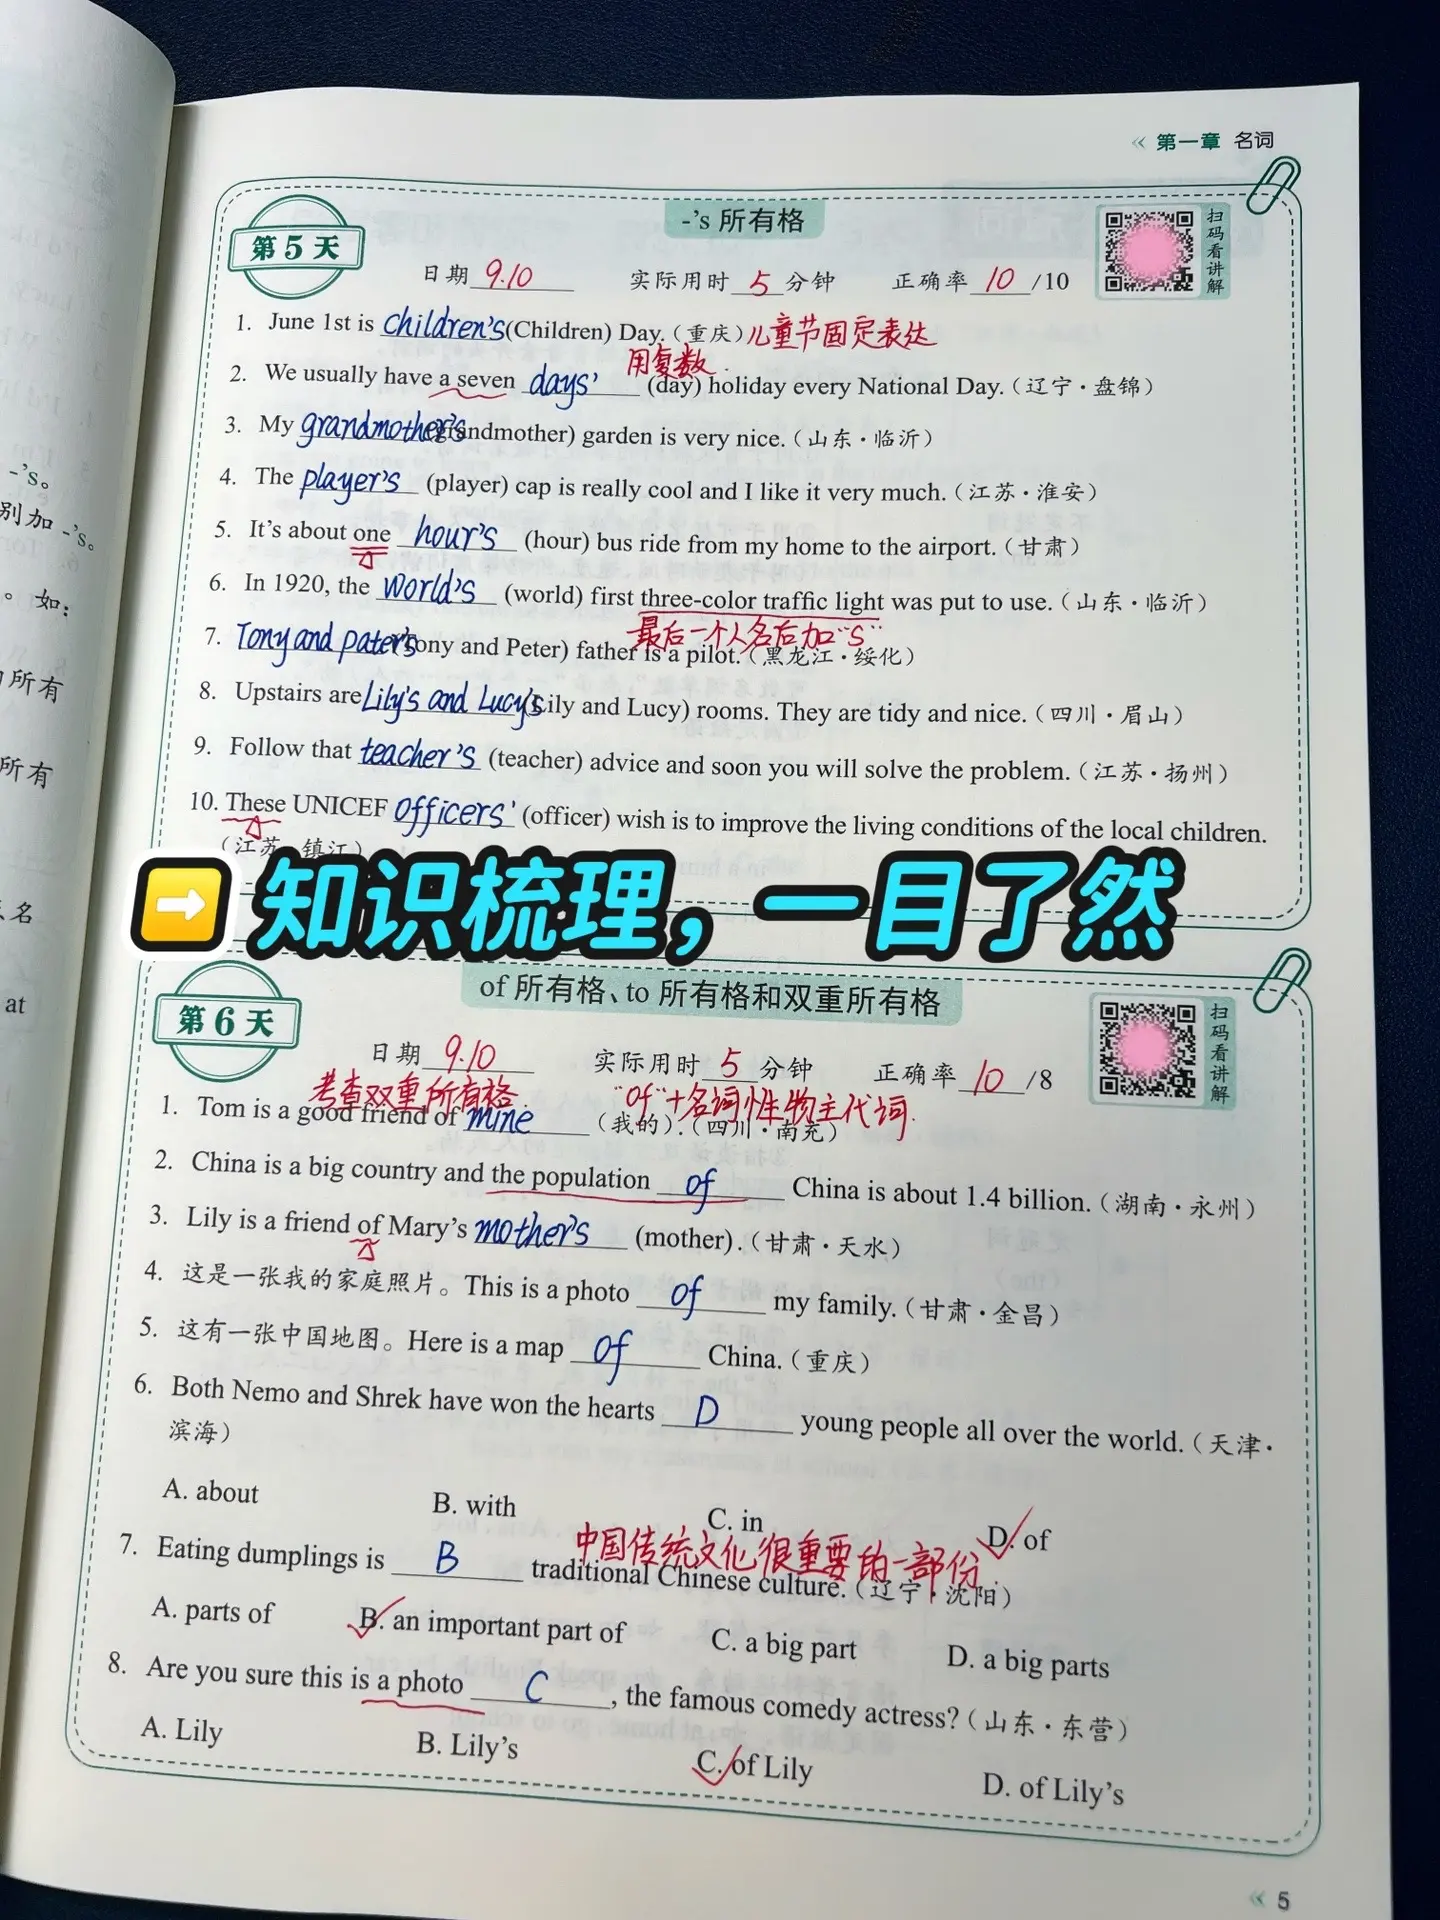 « 第一章 名词
第5天
-’s 所有格
扫码看讲解
日期 9.10 实际用时 5 分钟 正确率 10 /10
1. June 1st is Children's (Children) Day.(重庆)儿童节固定表达
用复数
2. We usually have a seven days' (day) holiday every National Day.(辽宁·盘锦)
3. My grandmother's (grandmother) garden is very nice.(山东·临沂)
4. The player's (player) cap is really cool and I like it very much.(江苏·淮安)
5. It’s about one hour's (hour) bus ride from my home to the airport.(甘肃)
6. In 1920, the world's (world) first three-color traffic light was put to use.(山东·临沂)
最后一个人名后加"s"
7. Tony and pater's (Tony and Peter) father is a pilot.(黑龙江·绥化)
8. Upstairs are Lily's and Lucy's (Lily and Lucy) rooms. They are tidy and nice.(四川·眉山)
9. Follow that teacher's (teacher) advice and soon you will solve the problem.(江苏·扬州)
10. These UNICEF officers' (officer) wish is to improve the living conditions of the local children.
(江苏·镇江)
知识梳理,一目了然
第6天
of 所有格、to 所有格和双重所有格
扫码看讲解
日期 9.10 实际用时 5 分钟 正确率 10 /8
考查双重所有格. "of"+名词性物主代词.
1. Tom is a good friend of mine (我的).(四川·南充)
2. China is a big country and the population of China is about 1.4 billion.(湖南·永州)
3. Lily is a friend of Mary’s mother's (mother).(甘肃·天水)
4. 这是一张我的家庭照片。This is a photo of my family.(甘肃·金昌)
5. 这有一张中国地图。Here is a map of China.(重庆)
6. Both Nemo and Shrek have won the hearts D young people all over the world.(天津·
滨海)
A. about B. with C. in D. of
中国传统文化很重要的一部份.
7. Eating dumplings is B traditional Chinese culture.(辽宁·沈阳)
A. parts of B. an important part of C. a big part D. a big parts
8. Are you sure this is a photo C , the famous comedy actress?(山东·东营)
A. Lily B. Lily’s C. of Lily D. of Lily’s
« 5
-’s。
别加 -’s。
。如:
所有
所有
名
at